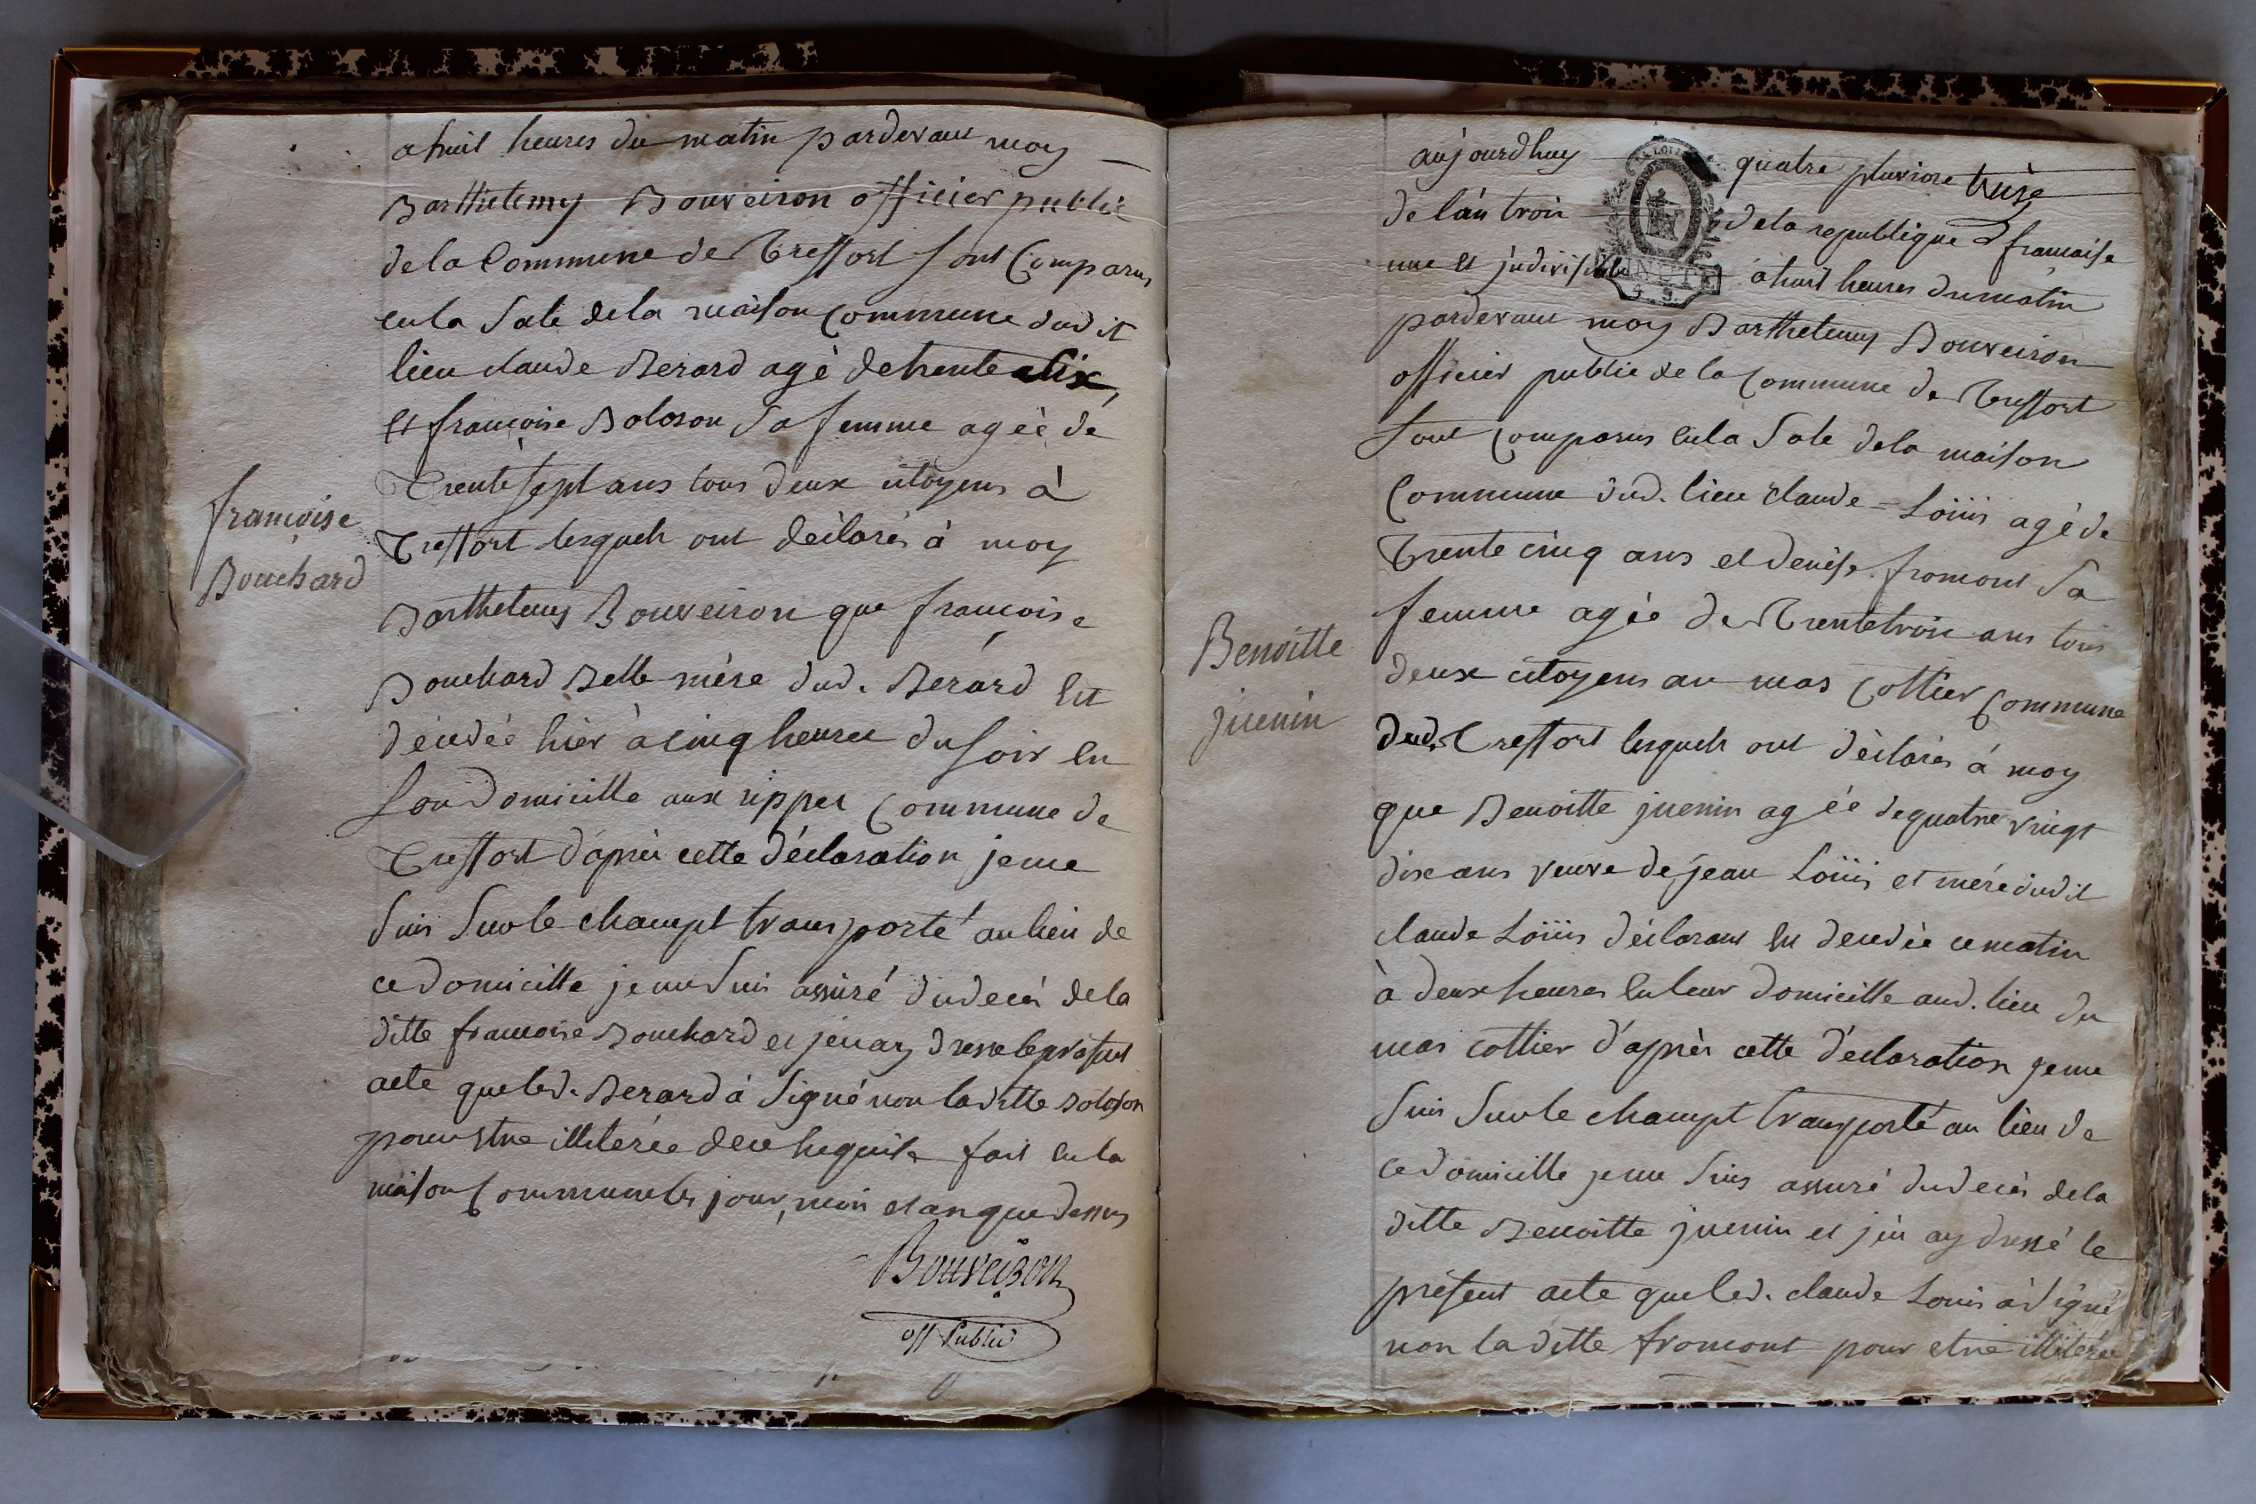 a huit heures du matin pardevant moy
Barthelemy Bouveiron officier public
de la Commune de Treffort sont Comparus
en la Sale de la maison Commune dudit
lieu claude Berard agè de trente six
et francoise Boloson sa femme agèè de
Trente sept ans tous deux citoyens à
Treffort lesquels ont déclarés à moy
francoise
Bouchard
Barthelemy Bouveiron que francoise
Bouchard Belle mère dud. Berard est
décédée hièr à cinq heures du soir en
son domicille aux rippes Commune de
Treffort d'après cette déclaration je me
suis sur le champt transporté au lieu de
ce domicille je me suis assuré du decès de la
ditte francoise Bouchard et j'en ay dressé le présent
acte que led. Berard à signé non laditte Boloson
pour etre illiterée de ce Requise fait en la
maison Commune les jour, mois et an que dessus
Bouveiron
off Public
aujourdhuy quatre pluviose
de l'an trois de la republique francaise
une et indivisible a huit heures du matin
pardevant moy Barthelemy Bouveiron
officier public de la Commune de Treffort
sont Comparus en la Sale de la maison
Commune dud. lieu claude = Loüis agè de
Trente cinq ans et denise fromont sa
femme agèe de Trente trois ans tous
Benoitte
juenin
deux citoyens au mas Cottier Commune
dud. Treffort lesquels ont déclarés à moy
que Benoitte juenin agée de quatre vingt
dix ans veuve de jean Loüis et mére dudit
claude Loüis déclarant est decedée ce matin
à deux heures en leur domicille aud. lieu du
mas cottier d'après cette déclaration je me
suis sur le champt transporté au lieu de
ce domicille je me suis assuré du decès de la
ditte Benoitte juenin et j'en ay dressé le
présent acte que led. claude Louis à signé
non laditte fromont pour etre illiterée